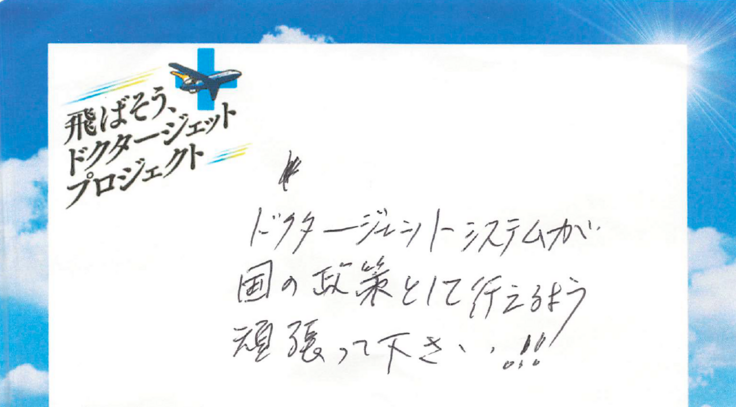 飛ばそう、
ドクタージェット
プロジェクト
ドクタージェットシステムが
国の政策として行えるよう
頑張って下さい!!!